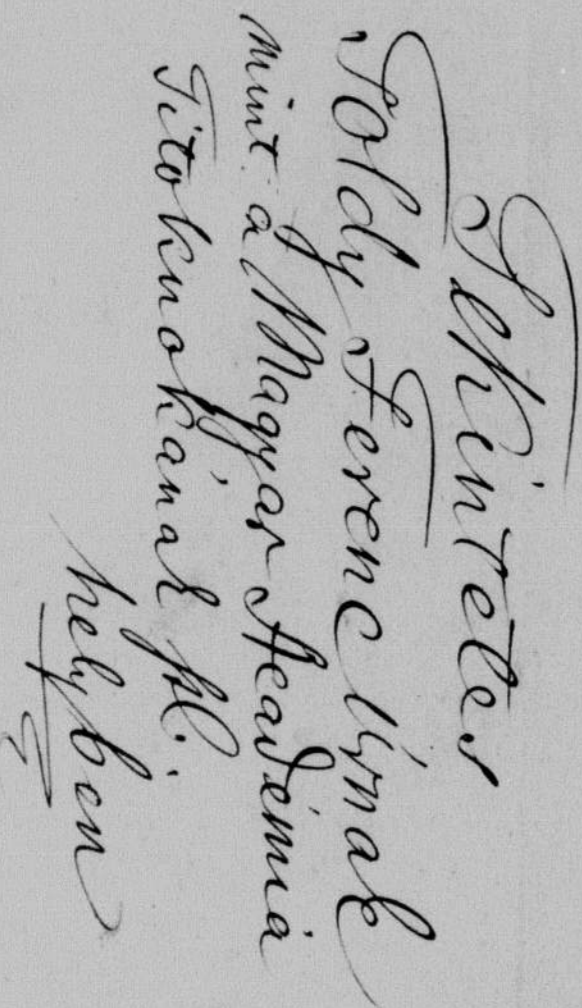 Tekintetes
Toldy Ferenc Úrnak
mint a Magyar Academia
Titoknokának
helyben